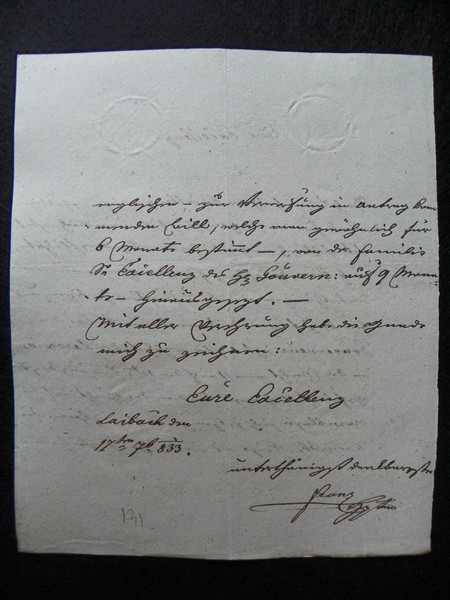 englischen – zur Verwahsung in Antrag kom-
menden Kill, welche man gewöhnlich für
6 Monate bestimt –, von der Familie
Sr Excellenz des H: Gouvern: auf 9 Mona-
te – hinausgesezt. –
Mit aller Verehrung habe die Gnade
mich zu zeichnen:
Eure Excellenz
Laibach den
17ten 7b 833.
unterthänigst dankbarster
Franz
131